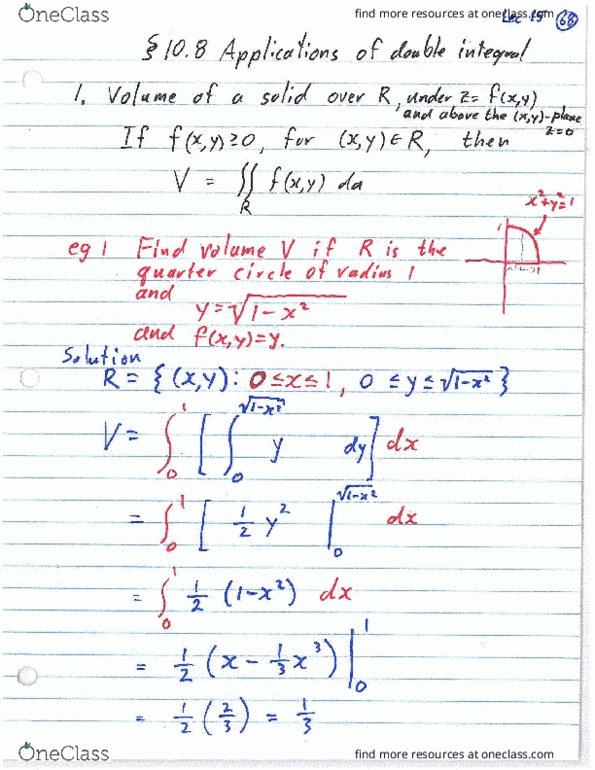 OneClass
find more resources at oneclass.com
Lec 19 68
§ 10.8 Applications of double integral
1. Volume of a solid over R, under z = f(x,y)
and above the (x,y)-plane
z=0
If f(x,y) ≥ 0, for (x,y) ∈ R, then
V = ∬_R f(x,y) da
x²+y²=1
1
1
eg 1 Find volume V if R is the
quarter circle of radius 1
and
y = √(1-x²)
and f(x,y)=y.
Solution
R = { (x,y): 0 ≤ x ≤ 1, 0 ≤ y ≤ √(1-x²) }
V = ∫₀¹ [ ∫₀^√(1-x²) y dy ] dx
= ∫₀¹ [ 1/2 y² |₀^√(1-x²) dx
= ∫₀¹ 1/2 (1-x²) dx
= 1/2 (x - 1/3 x³) |₀¹
= 1/2 (2/3) = 1/3
OneClass
find more resources at oneclass.com